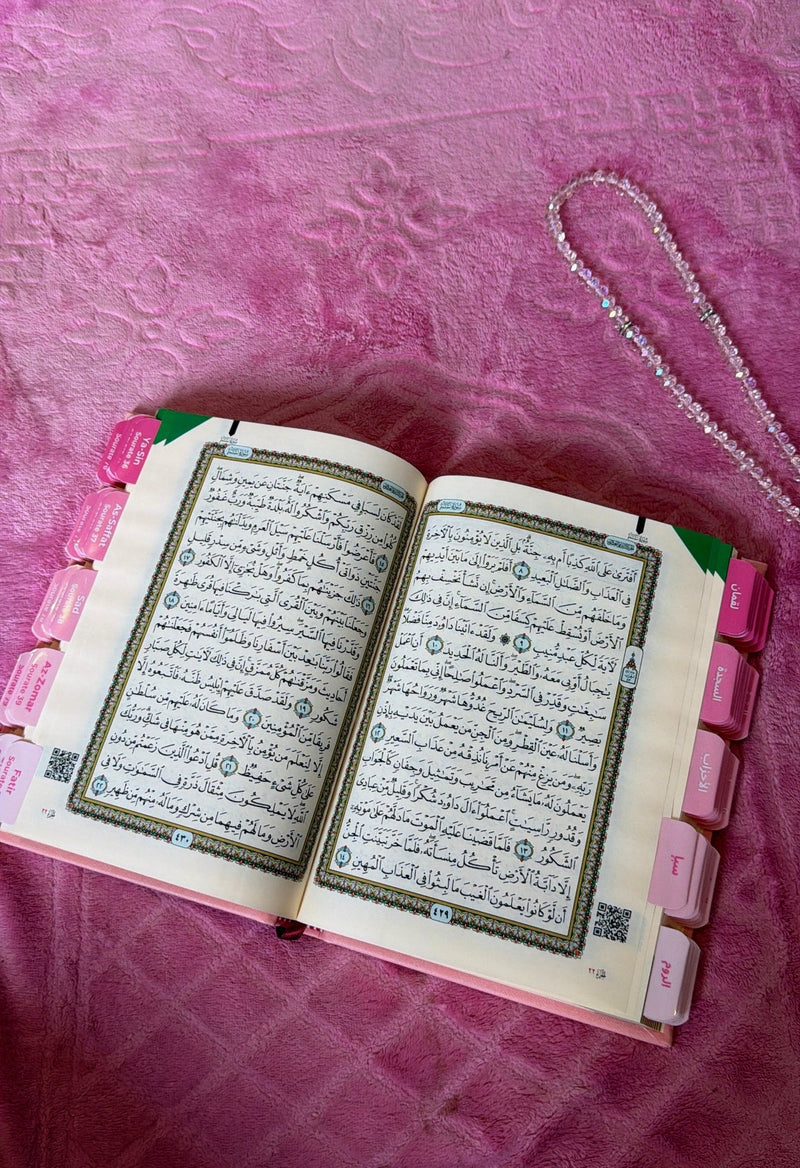 أَفْتَرَىٰ عَلَى ٱللَّهِ كَذِبًا أَم بِهِۦ جِنَّةٌۢۗ بَلِ ٱلَّذِينَ لَا يُؤْمِنُونَ بِٱلْءَاخِرَةِ
فِى ٱلْعَذَابِ وَٱلضَّلَٰلِ ٱلْبَعِيدِ ٨ أَفَلَمْ يَرَوْا۟ إِلَىٰ مَا بَيْنَ أَيْدِيهِمْ
وَمَا خَلْفَهُم مِّنَ ٱلسَّمَآءِ وَٱلْأَرْضِۚ إِن نَّشَأْ نَخْسِفْ بِهِمُ
ٱلْأَرْضَ أَوْ نُسْقِطْ عَلَيْهِمْ كِسَفًا مِّنَ ٱلسَّمَآءِۚ إِنَّ فِى ذَٰلِكَ
لَءَايَةً لِّكُلِّ عَبْدٍ مُّنِيبٍ ٩ ۞ وَلَقَدْ ءَاتَيْنَا دَاوُۥدَ مِنَّا فَضْلًاۖ
يَٰجِبَالُ أَوِّبِى مَعَهُۥ وَٱلطَّيْرَۖ وَأَلَنَّا لَهُ ٱلْحَدِيدَ ١٠ أَنِ ٱعْمَلْ
سَٰبِغَٰتٍ وَقَدِّرْ فِى ٱلسَّرْدِۖ وَٱعْمَلُوا۟ صَٰلِحًاۖ إِنِّى بِمَا تَعْمَلُونَ
بَصِيرٌ ١١ وَلِسُلَيْمَٰنَ ٱلرِّيحَ غُدُوُّهَا شَهْرٌ وَرَوَاحُهَا شَهْرٌۖ
وَأَسَلْنَا لَهُۥ عَيْنَ ٱلْقِطْرِۖ وَمِنَ ٱلْجِنِّ مَن يَعْمَلُ بَيْنَ يَدَيْهِ بِإِذْنِ
رَبِّهِۦۖ وَمَن يَزِغْ مِنْهُمْ عَنْ أَمْرِنَا نُذِقْهُ مِنْ عَذَابِ ٱلسَّعِيرِ ١٢
يَعْمَلُونَ لَهُۥ مَا يَشَآءُ مِن مَّحَٰرِيبَ وَتَمَٰثِيلَ وَجِفَانٍ كَٱلْجَوَابِ
وَقُدُورٍ رَّاسِيَٰتٍۚ ٱعْمَلُوٓا۟ ءَالَ دَاوُۥدَ شُكْرًاۚ وَقَلِيلٌ مِّنْ عِبَادِىَ
ٱلشَّكُورُ ١٣ فَلَمَّا قَضَيْنَا عَلَيْهِ ٱلْمَوْتَ مَا دَلَّهُمْ عَلَىٰ مَوْتِهِۦٓ
إِلَّا دَآبَّةُ ٱلْأَرْضِ تَأْكُلُ مِنسَأَتَهُۥۖ فَلَمَّا خَرَّ تَبَيَّنَتِ ٱلْجِنُّ
أَن لَّوْ كَانُوا۟ يَعْلَمُونَ ٱلْغَيْبَ مَا لَبِثُوا۟ فِى ٱلْعَذَابِ ٱلْمُهِينِ ١٤
٤٢٩
لقمان
السجدة
الأحزاب
سبإ
الروم
لَقَدْ كَانَ لِسَبَإٍ فِى مَسْكَنِهِمْ ءَايَةٌۖ جَنَّتَانِ عَن يَمِينٍ وَشِمَالٍۖ
كُلُوا۟ مِن رِّزْقِ رَبِّكُمْ وَٱشْكُرُوا۟ لَهُۥۚ بَلْدَةٌ طَيِّبَةٌ وَرَبٌّ غَفُورٌ
١٥ فَأَعْرَضُوا۟ فَأَرْسَلْنَا عَلَيْهِمْ سَيْلَ ٱلْعَرِمِ وَبَدَّلْنَٰهُم بِجَنَّتَيْهِمْ
جَنَّتَيْنِ ذَوَاتَىْ أُكُلٍ خَمْطٍ وَأَثْلٍ وَشَىْءٍ مِّن سِدْرٍ قَلِيلٍ
١٦ ذَٰلِكَ جَزَيْنَٰهُم بِمَا كَفَرُوا۟ۖ وَهَلْ نُجَٰزِىٓ إِلَّا ٱلْكَفُورَ ١٧
وَجَعَلْنَا بَيْنَهُمْ وَبَيْنَ ٱلْقُرَى ٱلَّتِى بَٰرَكْنَا فِيهَا قُرًى ظَٰهِرَةً
وَقَدَّرْنَا فِيهَا ٱلسَّيْرَۖ سِيرُوا۟ فِيهَا لَيَالِىَ وَأَيَّامًا ءَامِنِينَ ١٨
فَقَالُوا۟ رَبَّنَا بَٰعِدْ بَيْنَ أَسْفَارِنَا وَظَلَمُوٓا۟ أَنفُسَهُمْ فَجَعَلْنَٰهُمْ
أَحَادِيثَ وَمَزَّقْنَٰهُمْ كُلَّ مُمَزَّقٍۚ إِنَّ فِى ذَٰلِكَ لَءَايَٰتٍ لِّكُلِّ صَبَّارٍ
شَكُورٍ ١٩ وَلَقَدْ صَدَّقَ عَلَيْهِمْ إِبْلِيسُ ظَنَّهُۥ فَٱتَّبَعُوهُ إِلَّا
فَرِيقًا مِّنَ ٱلْمُؤْمِنِينَ ٢٠ وَمَا كَانَ لَهُۥ عَلَيْهِم مِّن سُلْطَٰنٍ
إِلَّا لِنَعْلَمَ مَن يُؤْمِنُ بِٱلْءَاخِرَةِ مِمَّنْ هُوَ مِنْهَا فِى شَكٍّۗ وَرَبُّكَ
عَلَىٰ كُلِّ شَىْءٍ حَفِيظٌ ٢١ قُلِ ٱدْعُوا۟ ٱلَّذِينَ زَعَمْتُم مِّن دُونِ
ٱللَّهِ لَا يَمْلِكُونَ مِثْقَالَ ذَرَّةٍ فِى ٱلسَّمَٰوَٰتِ وَلَا فِى
ٱلْأَرْضِ وَمَا لَهُمْ فِيهِمَا مِن شِرْكٍ وَمَا لَهُۥ مِنْهُم مِّن ظَهِيرٍ ٢٢
٤٣٠
Ya-Sin
Sourate 36
As-Saffat
Sourate 37
Sad
Sourate 38
Az-Zomar
Sourate 39
Fatir
Sourate